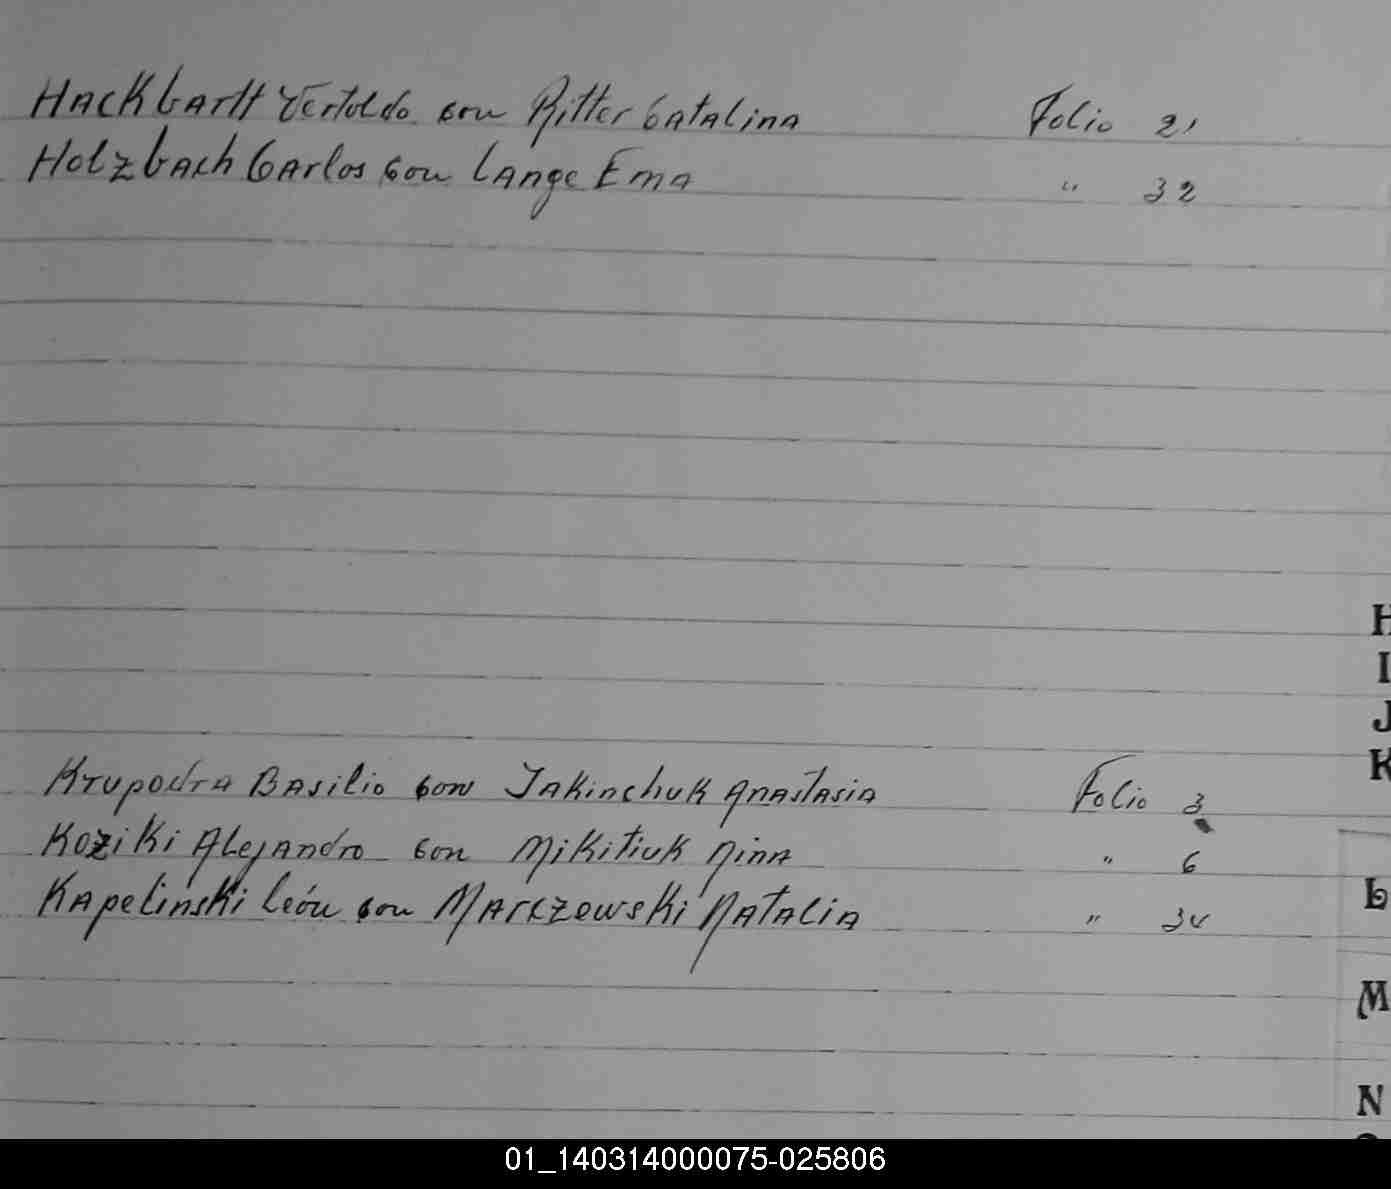 Hackbartt Vertoldo con Ritter Catalina Folio 21
Holzbach Carlos con Lange Ema " 32
H
I
J
K
Krupodra Basilio con Jakinchuk Anastasia Folio 3
Koziki Alejandro con Mikitiuk Nina " 6
Kapelinski León con Marczewski Natalia " 34
L
M
N
01_140314000075-025806